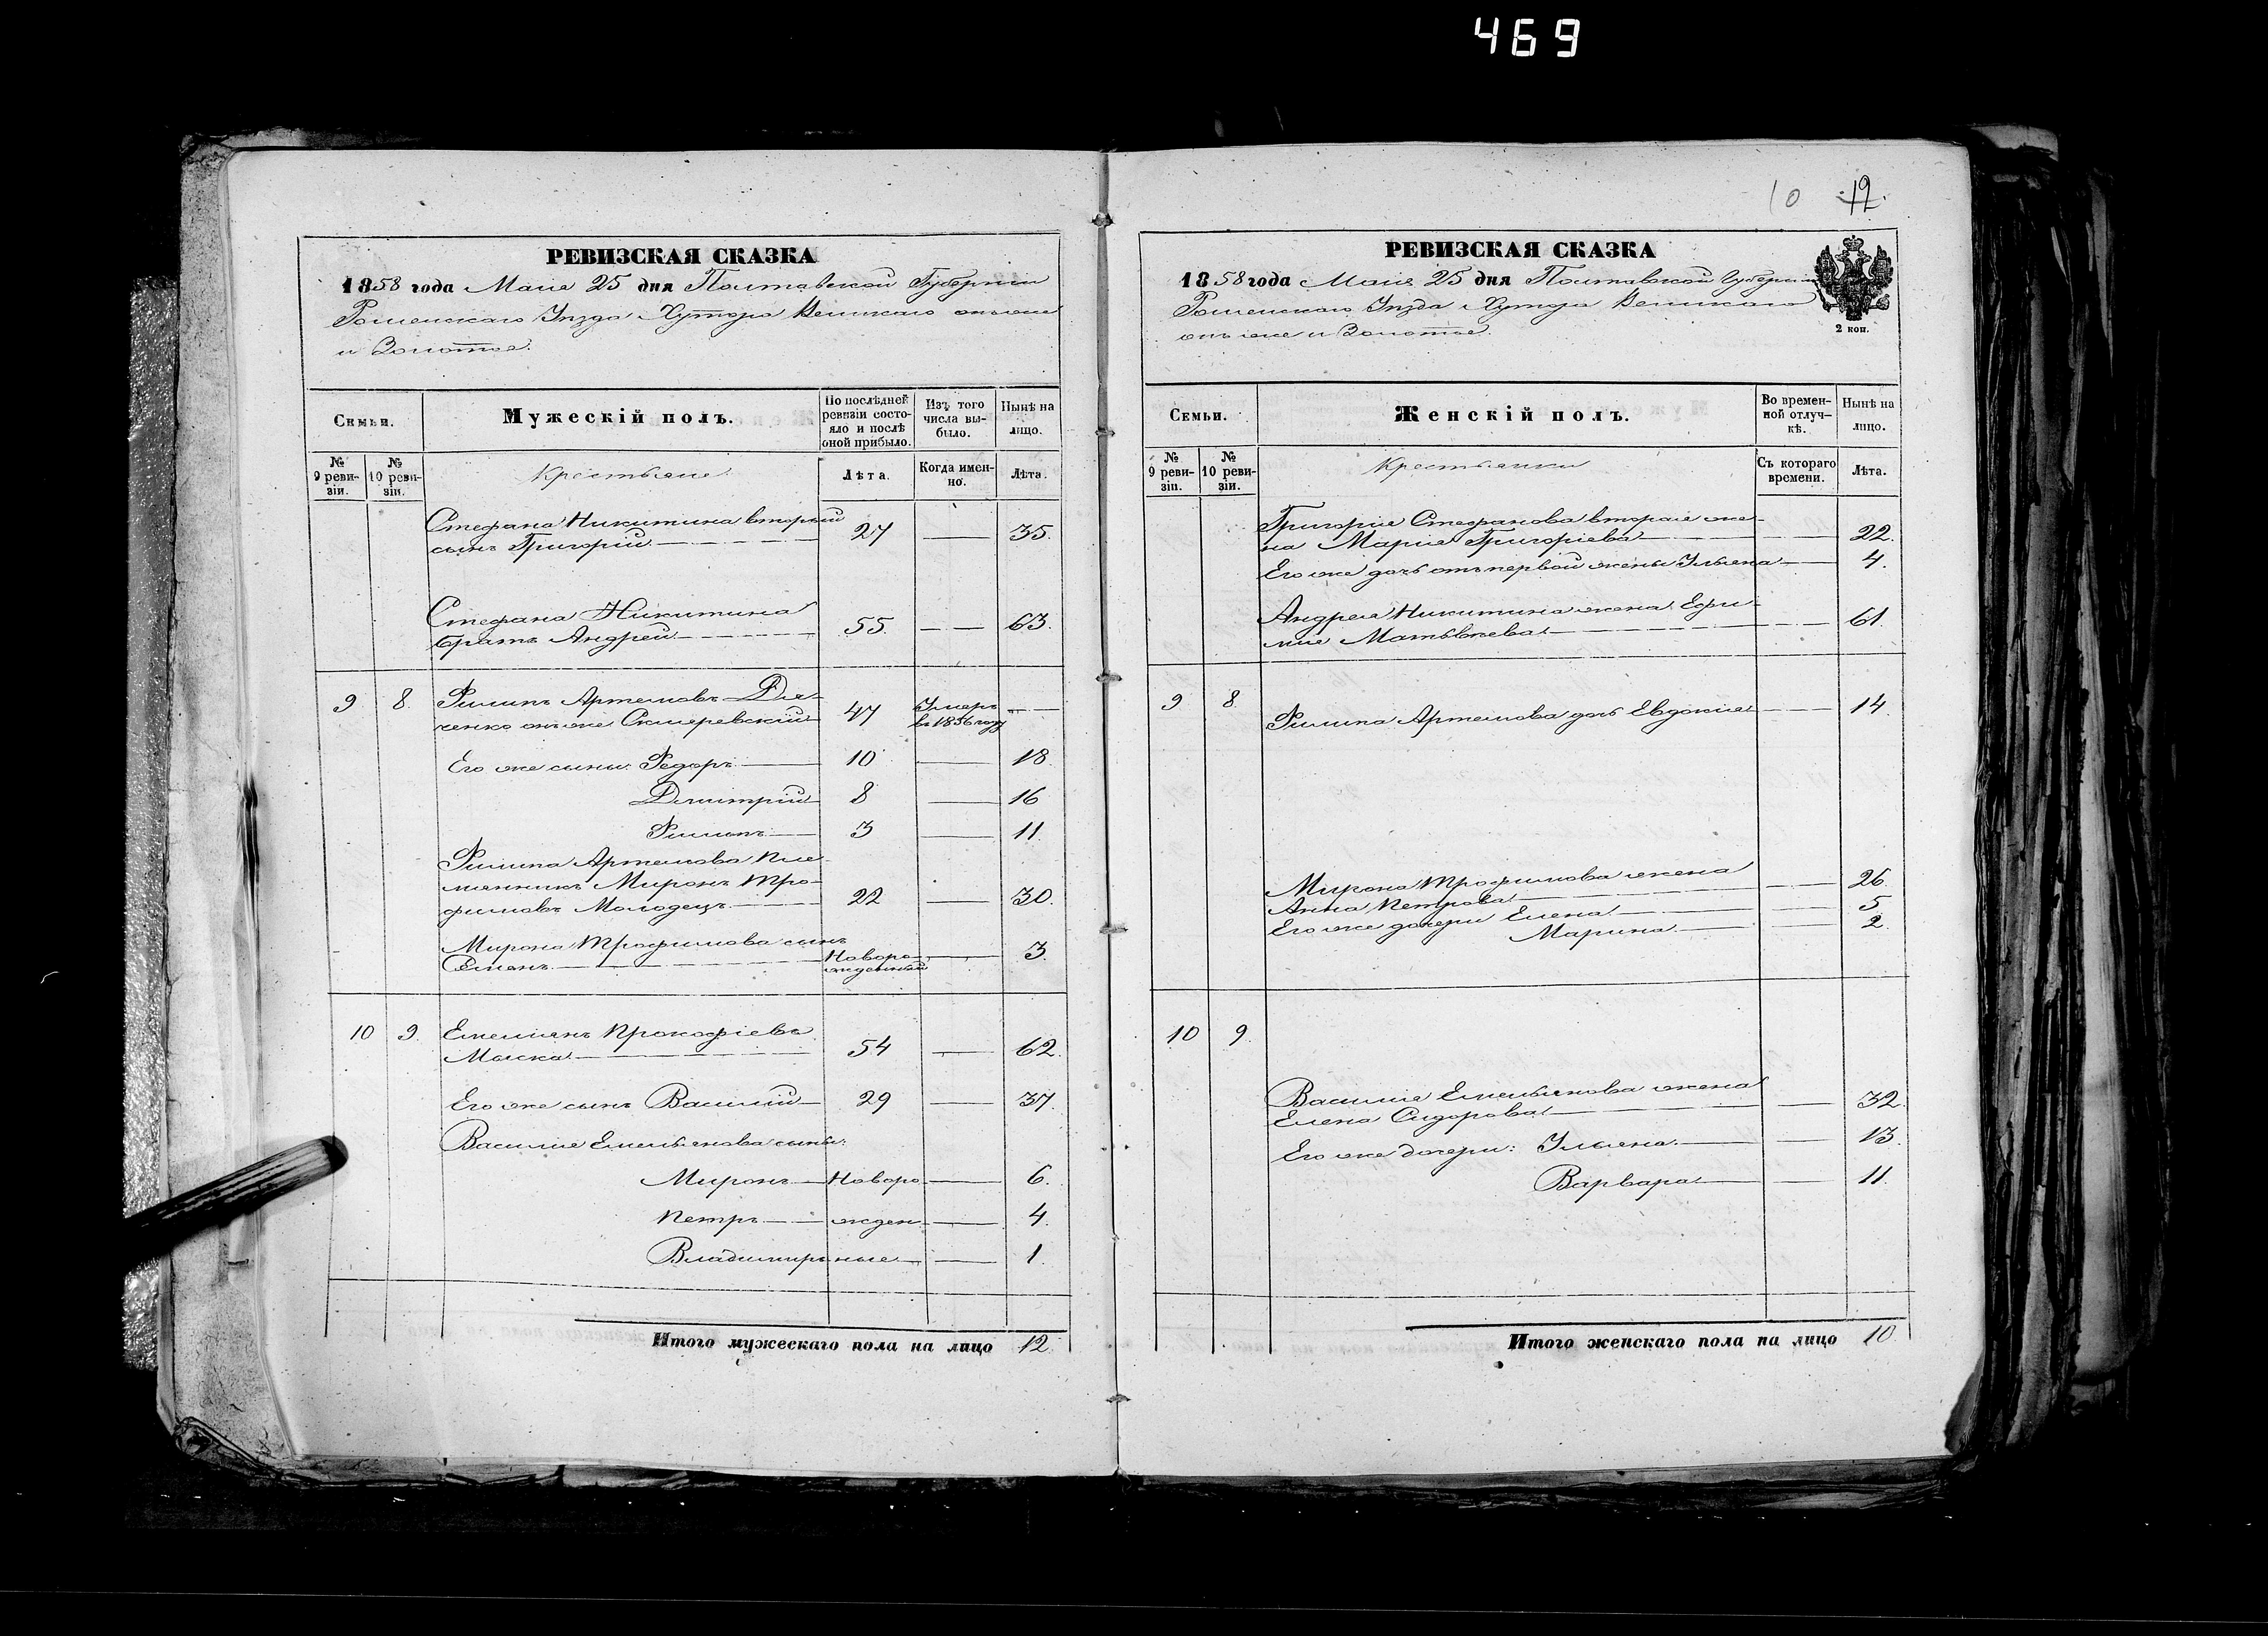 469
РЕВИЗСКАЯ СКАЗКА
1858 года Мая 25 дня Полтавской Губернии
Роменскаго Уезда Хутора Великаго онъ же
и Золотое.
Семьи.
Мужескій полъ.
По послѣдней ревизіи состояло и послѣ оной прибыло.
Изъ того числа выбыло.
Нынѣ на лицо.
№ 9 ревизіи.
№ 10 ревизіи.
Крестьяне
Лѣта.
Когда именно.
Лѣта.
Стефана Никитина вторый
сынъ Григорій 27 35.
Стефана Никитина
братъ Андрей 55. 63.
9 8. Филипъ Артемовъ Дья-
ченко онъ же 47 Умеръ
въ 1856 году
Его же сыны: Федоръ 10 18.
Дмитрій 8 16
Филипъ 3 11.
Филипа Артемова пле-
мянникъ Миронъ Тро-
фимовъ Молодецъ 22 30.
Мирона Трофимова сынъ
Семенъ Новоро-
жденный 3.
10 9. Емельянъ Прокофіевъ
54 62.
Его же сынъ Василій 29 37.
Василія Емельянова сыны:
Миронъ Новоро 6.
Петръ жден 4.
Владимиръ ные 1.
Итого мужескаго пола на лицо 12
10 12.
РЕВИЗСКАЯ СКАЗКА
1858 года Мая 25 дня Полтавской Губерніи
Роменскаго Уезда Хутора Великаго
онъ же и Золотое.
2 коп.
Семьи.
Женскій полъ.
Во временной отлучкѣ.
Нынѣ на лицо.
№ 9 ревизіи.
№ 10 ревизіи.
Крестьянки
Съ котораго времени.
Лѣта.
Григорія Стефанова вторая же-
на Марія Григоріева 22.
Его же дочь отъ первой жены Ульяна 4.
Андрея Никитина жена Ефи-
мія Матвѣева 61.
9 8.
Филипа Артемова дочь Евдокія 14.
Мирона Трофимова жена
Анна Петрова 26.
Его же дочери Елена 5
Марина 2.
10 9.
Василія Емельянова жена
Елена Сидорова 32.
Его же дочери: Ульяна 13.
Варвара 11.
Итого женскаго пола на лицо 10.